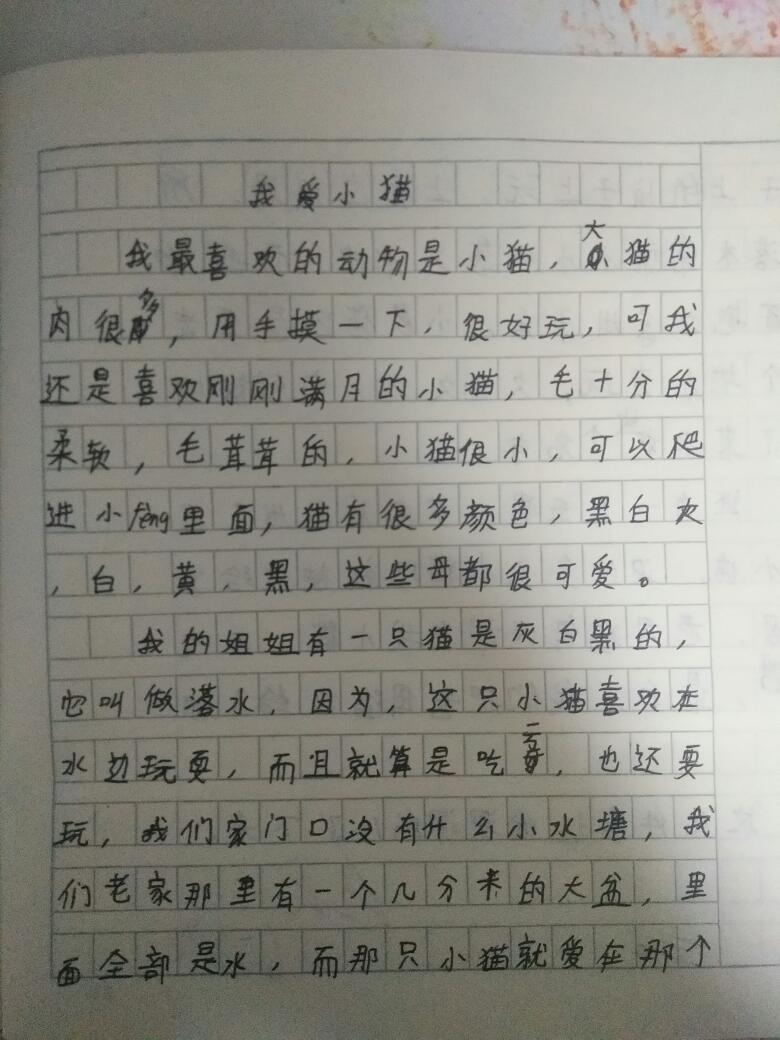 我爱小猫
我最喜欢的动物是小猫，大猫的
肉很多，用手摸一下，很好玩，可我
还是喜欢刚刚满月的小猫，毛十分的
柔软，毛茸茸的，小猫很小，可以爬
进小fèng里面，猫有很多颜色，黑白灰
，白，黄，黑，这些母都很可爱。
我的姐姐有一只猫是灰白黑的，
它叫做落水，因为，这只小猫喜欢在
水边玩耍，而且就算是吃，也还要
玩，我们家门口没有什么小水塘，我
们老家那里有一个几分米的大盆，里
面全部是水，而那只小猫就爱在那个